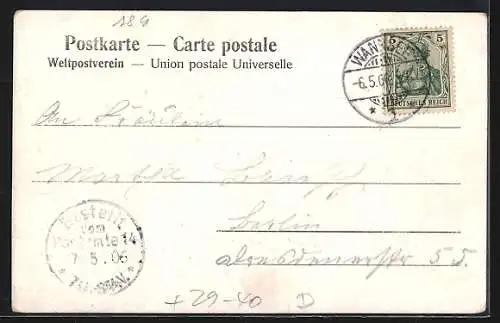 189
Postkarte — Carte postale
Weltpostverein — Union postale Universelle
5
DEUTSCHES REICH
WANSBEK
-6.5.06
* 1
An Fräulein
Martha
Berlin
Dresdenerstr 55.
Bestellt
vom
Postamte 14
7.5.06
+29-40 D